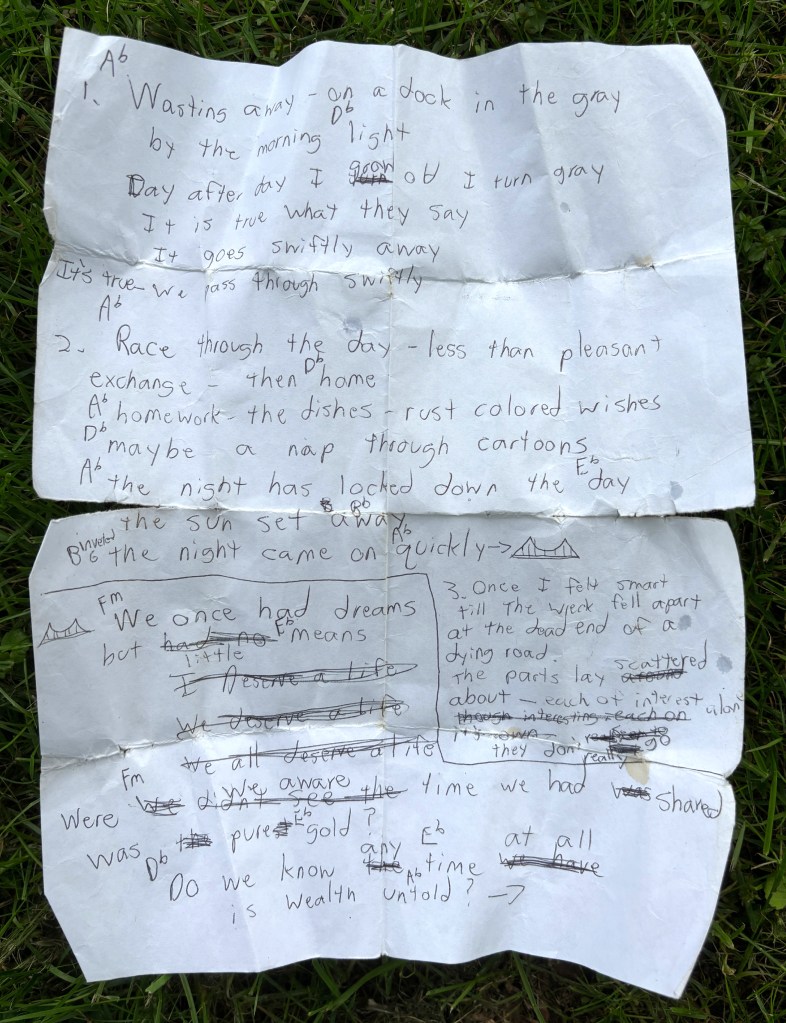 A♭
1. Wasting away - on a dock in the gray
D♭
by the morning light
Day after day I grow old I turn gray
It is true what they say
It goes swiftly away
It's true - we pass through swiftly
A♭
2. Race through the day - less than pleasant
D♭
exchange - then home
A♭ homework - the dishes - rust colored wishes
D♭ maybe a nap through cartoons
A♭ E♭
the night has locked down the day
B♭
the sun set away
inverted A♭
B♭6 the night came on quickly →
Fm
We once had dreams
E♭
but had no means
little
I Deserve a life
We deserve a life
We all deserve a life
3. Once I felt smart
till The week fell apart
at the dead end of a
dying road.
scattered
The parts lay around
about - each of interest alone
though interesting - each on
its own -
they don't really go
Fm
Were we aware
We didn't see the time we had was shared
E♭
was the pure gold?
any E♭ at all
D♭ Do we know the time we have
A♭
is wealth untold? →